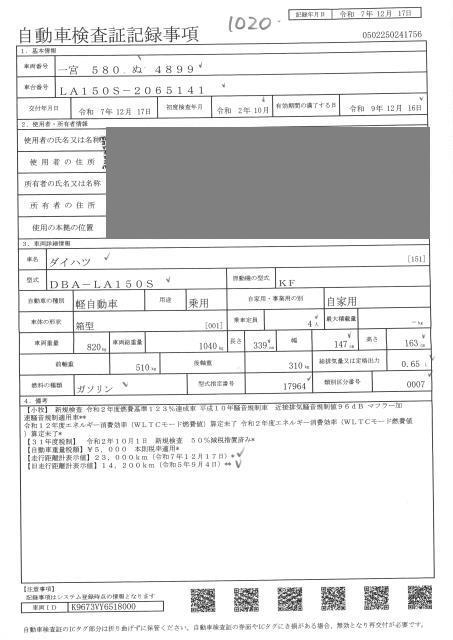 1020
記録年月日 令和 7年12月 17日
自動車検査証記録事項
0502250241756
1．基本情報
車両番号 一宮 580 ぬ 4899
車台番号 LA150S-2065141
交付年月日 令和 7年12月 17日 初度検査年月 令和 2年10月 有効期間の満了する日 令和 9年12月 16日
2．使用者・所有者情報
使用者の氏名又は名称
使用者の住所
所有者の氏名又は名称
所有者の住所
使用の本拠の位置
3．車両詳細情報
車名 ダイハツ [151]
型式 DBA-LA150S 原動機の型式 KF
自動車の種別 軽自動車 用途 乗用 自家用・事業用の別 自家用
車体の形状 箱型 [001] 乗車定員 4人 最大積載量 -kg
車両重量 820kg 車両総重量 1040kg 長さ 339cm 幅 147cm 高さ 163cm
前軸重 510kg 後軸重 310kg 総排気量又は定格出力 0.65L
燃料の種類 ガソリン 型式指定番号 17964 類別区分番号 0007
4．備考
【小牧】 新規検査 令和２年度燃費基準１２３％達成車 平成１０年騒音規制車 近接排気騒音規制値９６ｄＢ マフラー加
速騒音規制適用車**
令和１２年度エネルギー消費効率（ＷＬＴＣモード燃費値）算定未了 令和２年度エネルギー消費効率（ＷＬＴＣモード燃費値
）算定未了*
【３１年度税制】 令和２年１０月１日 新規検査 ５０％減税措置済み*
【自動車重量税額】￥５，０００ 本則税率適用*
【走行距離計表示値】２３，０００ｋｍ（令和７年１２月１７日）*
【旧走行距離計表示値】１４，２００ｋｍ（令和５年９月４日）*
【注意事項】
記録事項はシステム登録時点の情報となります
車両ID K9673VY6518000
自動車検査証のICタグ部分は折り曲げずに保管ください。自動車検査証の券面やICタグにき損がある場合、無効となり再交付が必要です。